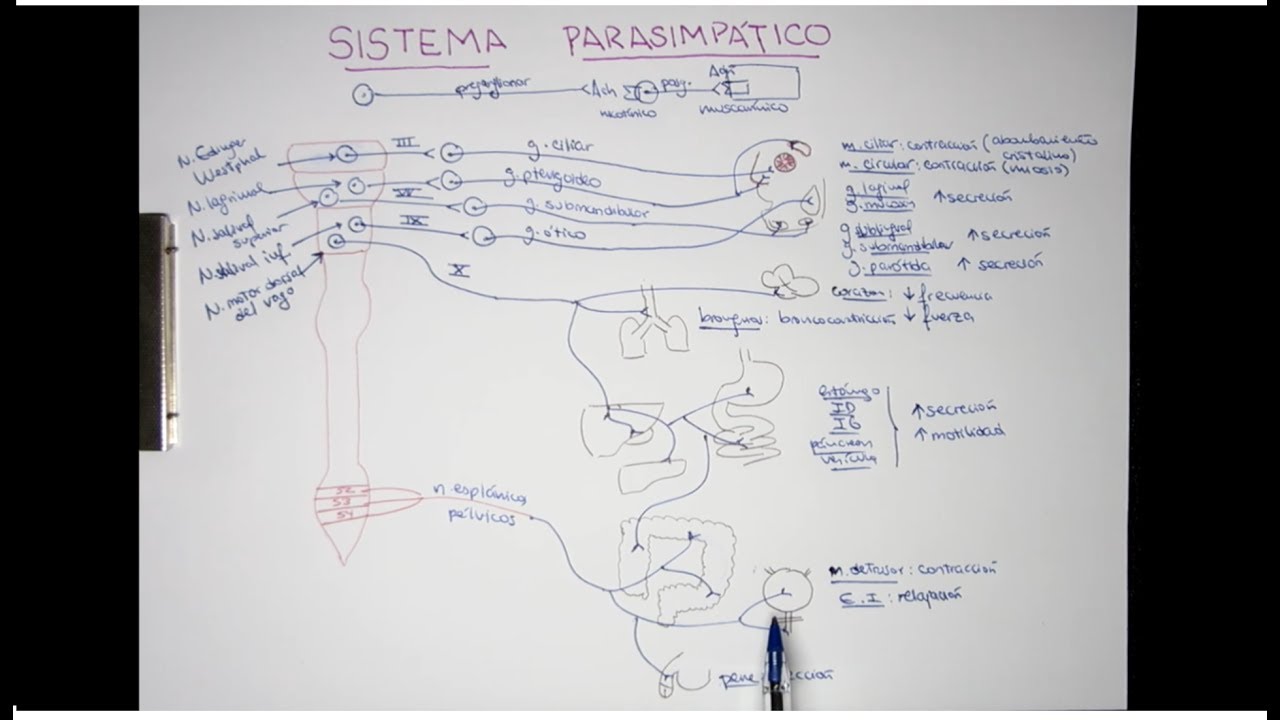 SISTEMA PARASIMPÁTICO
preganglionar
Ach
nicotínico
posg.
Ach
muscarínico
N. Edinger
Westphal
N. lagrimal
N. salival
superior
N. salival inf
N. motor dorsal
del vago
III
VII
IX
X
g. ciliar
g. pterigoideo
g. submandibular
g. ótico
m. ciliar: contracción (abombamiento
cristalino)
m. circular: contracción (miosis)
g. lagrimal
g. mucosas
↑ secreción
g. sublingual
g. submandibular
↑ secreción
g. parótida ↑ secreción
corazón: ↓ frecuencia
↓ fuerza
bronquios: broncoconstricción
estómago
ID
IG
páncreas
vesícula
↑ secreción
↑ motilidad
S2
S3
S4
n. esplácnicos
pélvicos
m. detrusor: contracción
E. I: relajación
pene